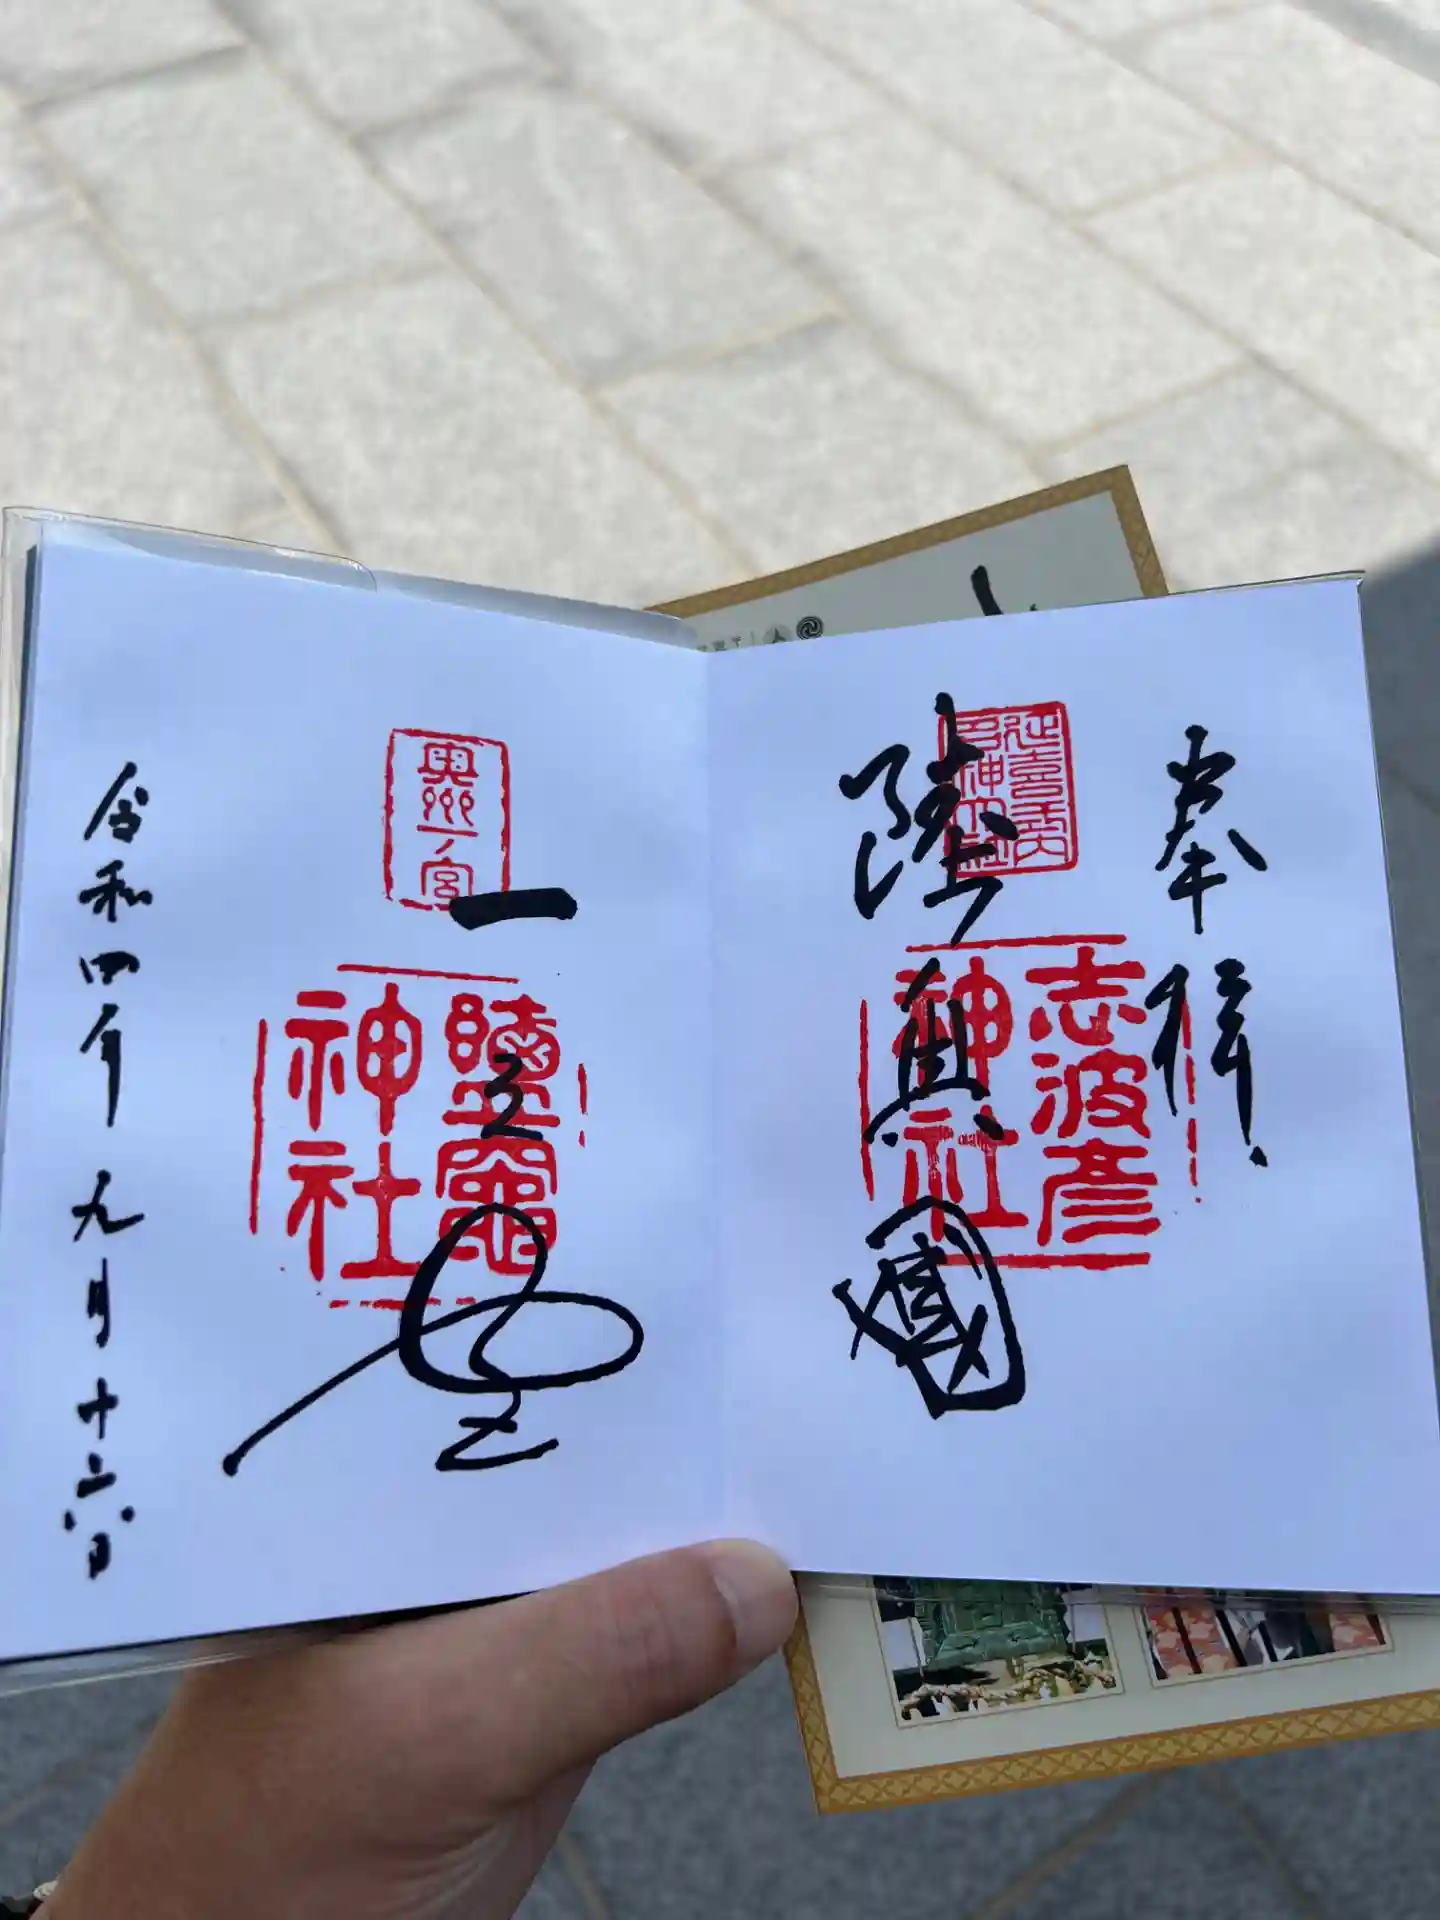 奉拝
陸奥國
延喜式内
名神大社
志波彦
神社
一之宮
奥州一ノ宮
鹽竈
神社
令和四年九月十六日